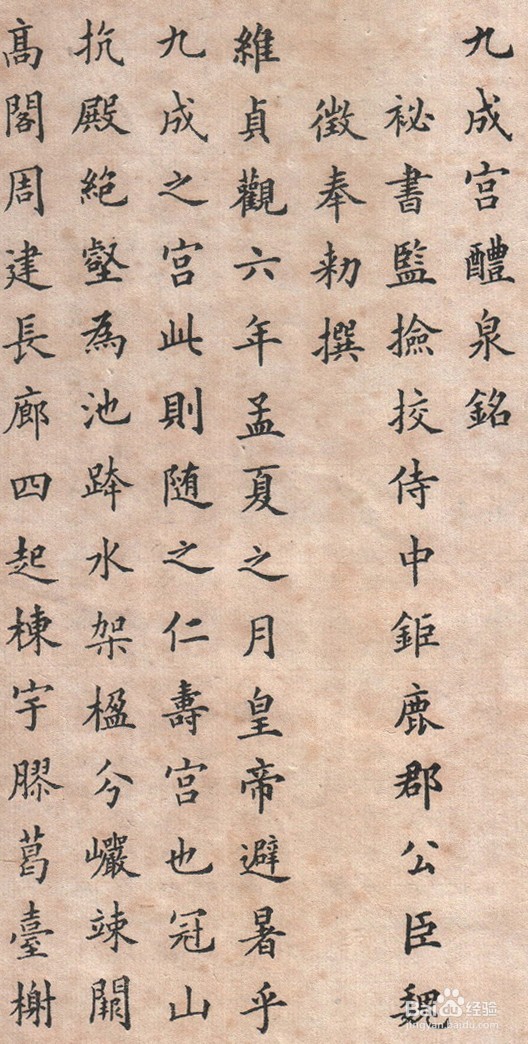 九成宫醴泉銘
祕書監撿挍侍中鉅鹿郡公臣魏
徵奉勑撰
維貞觀六年孟夏之月皇帝避暑乎
九成之宫此則随之仁壽宫也冠山
抗殿絶壑為池跨水架楹分巗竦闕
髙閣周建長廊四起棟宇膠葛臺榭
Baidu经验
jingyan.baidu.com